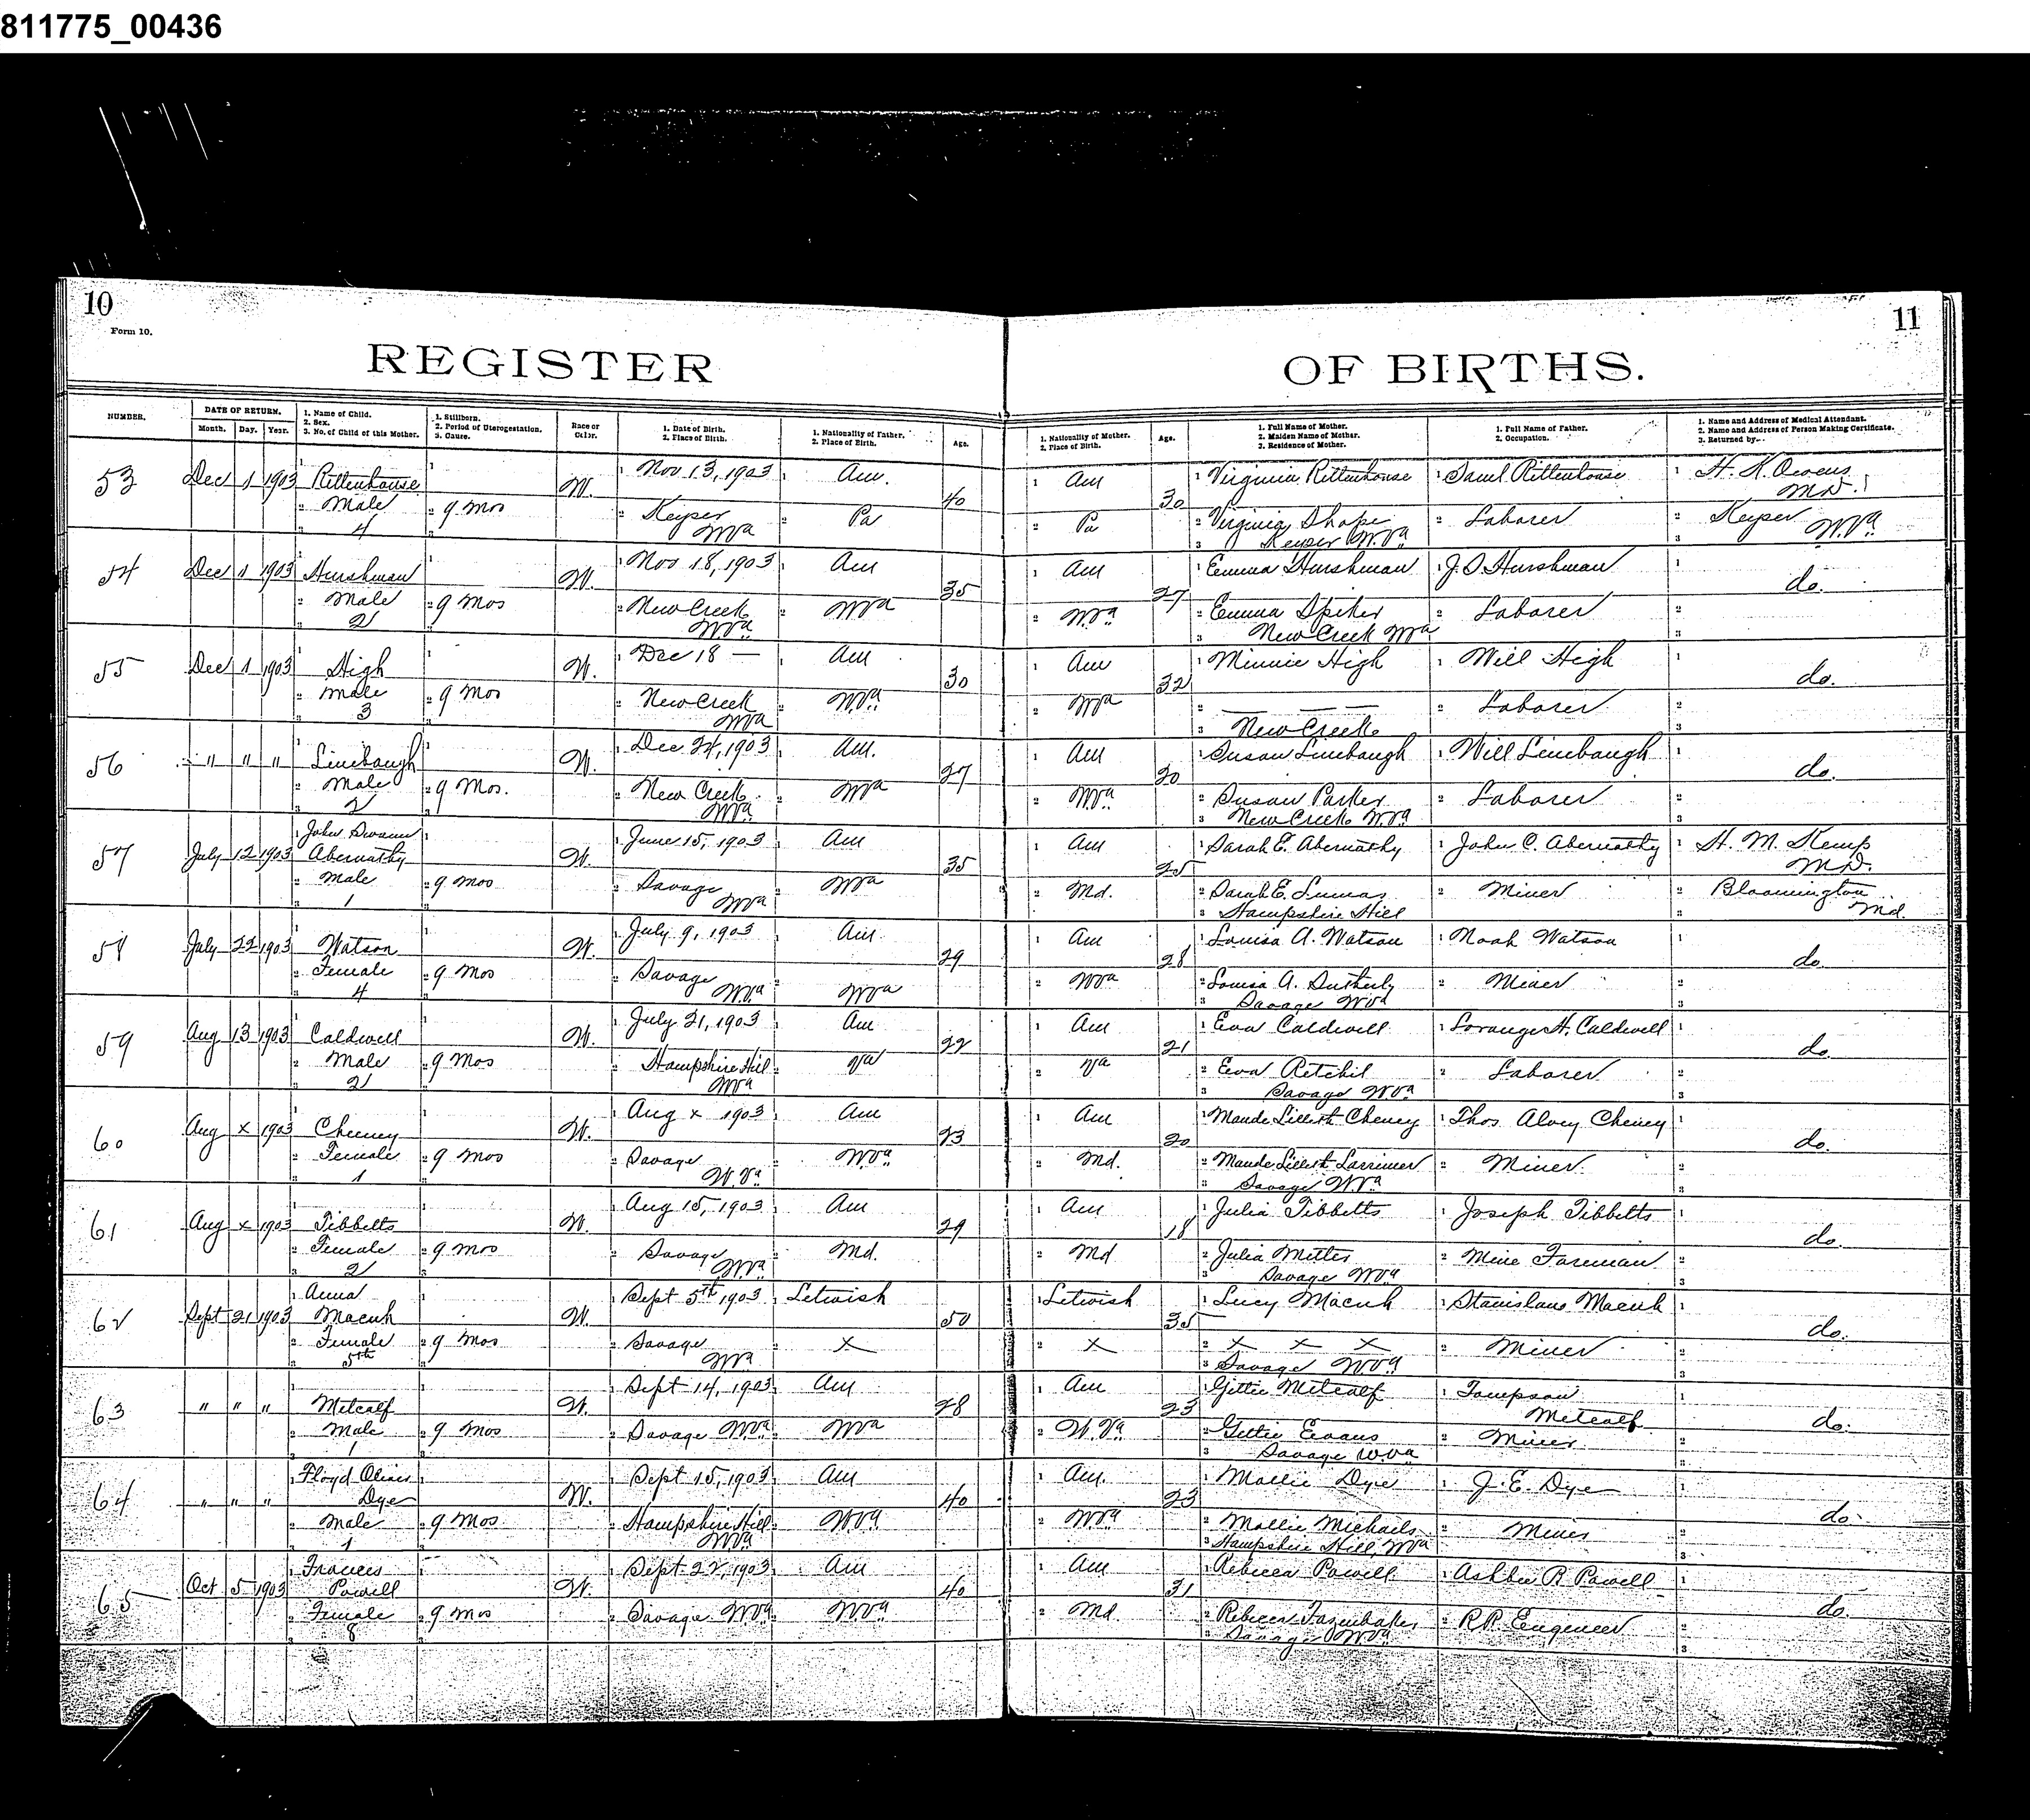 811775_00436
10
Form 10.
REGISTER
OF BIRTHS.
11
NUMBER.
DATE OF RETURN.
Month. Day. Year.
1. Name of Child.
2. Sex.
3. No. of Child of this Mother.
1. Stillborn.
2. Period of Uterogestation.
3. Cause.
Race or Color.
1. Date of Birth.
2. Place of Birth.
1. Nationality of Father.
2. Place of Birth.
Age.
1. Nationality of Mother.
2. Place of Birth.
Age.
1. Full Name of Mother.
2. Maiden Name of Mother.
3. Residence of Mother.
1. Full Name of Father.
2. Occupation.
1. Name and Address of Medical Attendant.
2. Name and Address of Person Making Certificate.
3. Returned by
53 Dec 1 1903 Rittenhouse W. Nov 13, 1903 Am. 40 Am 30 Virginia Rittenhouse Saml Rittenhouse H. K. Owens M.D.
Male 9 mos Keyser W Va Pa Pa Virginia Shope Laborer Keyser W. Va
4 Keyser W. Va
54 Dec 1 1903 Hurshman W. Nov 18, 1903 Am 35 Am 27 Emma Hurshman J. O. Hurshman do.
Male 9 mos New Creek W Va W Va W. Va Emma Spiker Laborer
2 New Creek W Va
55 Dec 1 1903 High W. Dec 18 — Am 30 Am 32 Minnie High Will High do.
Male 9 mos New Creek W Va W. Va W Va — — — Laborer
3 New Creek
56 " " " Linebaugh W. Dec 24, 1903 Am. 27 Am 20 Susan Linebaugh Will Linebaugh do.
Male 9 Mos. New Creek W Va W Va W Va Susan Parker Laborer
2 New Creek W. Va
57 July 12 1903 John Swann Abernathy W. June 15, 1903 Am 35 Am 25 Sarah E. Abernathy John C. Abernathy H. M. Kemp M.D.
Male 9 mos Savage W Va W Va Md. Sarah E. Miner Bloomington Md.
1 Hampshire Hill
58 July 22 1903 Watson W. July 9, 1903 Am 29 Am 28 Louisa A. Watson Noah Watson do.
Female 9 mos Savage W. Va W Va W Va Louisa A. Miner
4 Savage W Va
59 Aug 13 1903 Caldwell W. July 21, 1903 Am 22 Am 21 Eva Caldwell Loranger H. Caldwell do.
Male 9 Mos Hampshire Hill W Va Va Va Eva Retchil Laborer
2 Savage W Va
60 Aug x 1903 Cheney W. Aug x 1903 Am 23 Am 20 Maude Lilleth Cheney Thos Alvey Cheney do.
Female 9 mos Savage W. Va W Va Md. Maude Lilleth Larrimer Miner
1 Savage W. Va
61 Aug x 1903 Tibbetts W. Aug 15, 1903 Am 29 Am 18 Julia Tibbetts Joseph Tibbetts do.
Female 9 mos Savage W. Va Md. Md Julia Mine Foreman
2 Savage W Va
62 Sept 21 1903 Anna Macuk W. Sept 5th 1903 Letwish 50 Letwish 35 Lucy Macuk Stanislaus Macuk do.
Female 9 mos Savage W Va x x x x x Miner
5th Savage W Va
63 " " " Metcalf W. Sept 14, 1903 Am 28 Am 23 Gettie Metcalf Tompson Metcalf do.
Male 9 mos Savage W Va W Va W. Va Gettie Evans Miner
1 Savage W Va
64 " " " Floyd Oliver Dye W. Sept 15, 1903 Am 40 Am. 23 Mollie Dye J. E. Dye do.
Male 9 mos Hampshire Hill W Va W Va W Va Mollie Michaels Miner
1 Hampshire Hill, W Va
65 Oct 5 1903 Frances Powell W. Sept 22, 1903 Am 40 Am 31 Rebecca Powell Ashbee R Powell do.
Female 9 mos Savage W Va W. Va Md. Rebecca Fazenbaker R.R. Engineer
8 Savage W Va